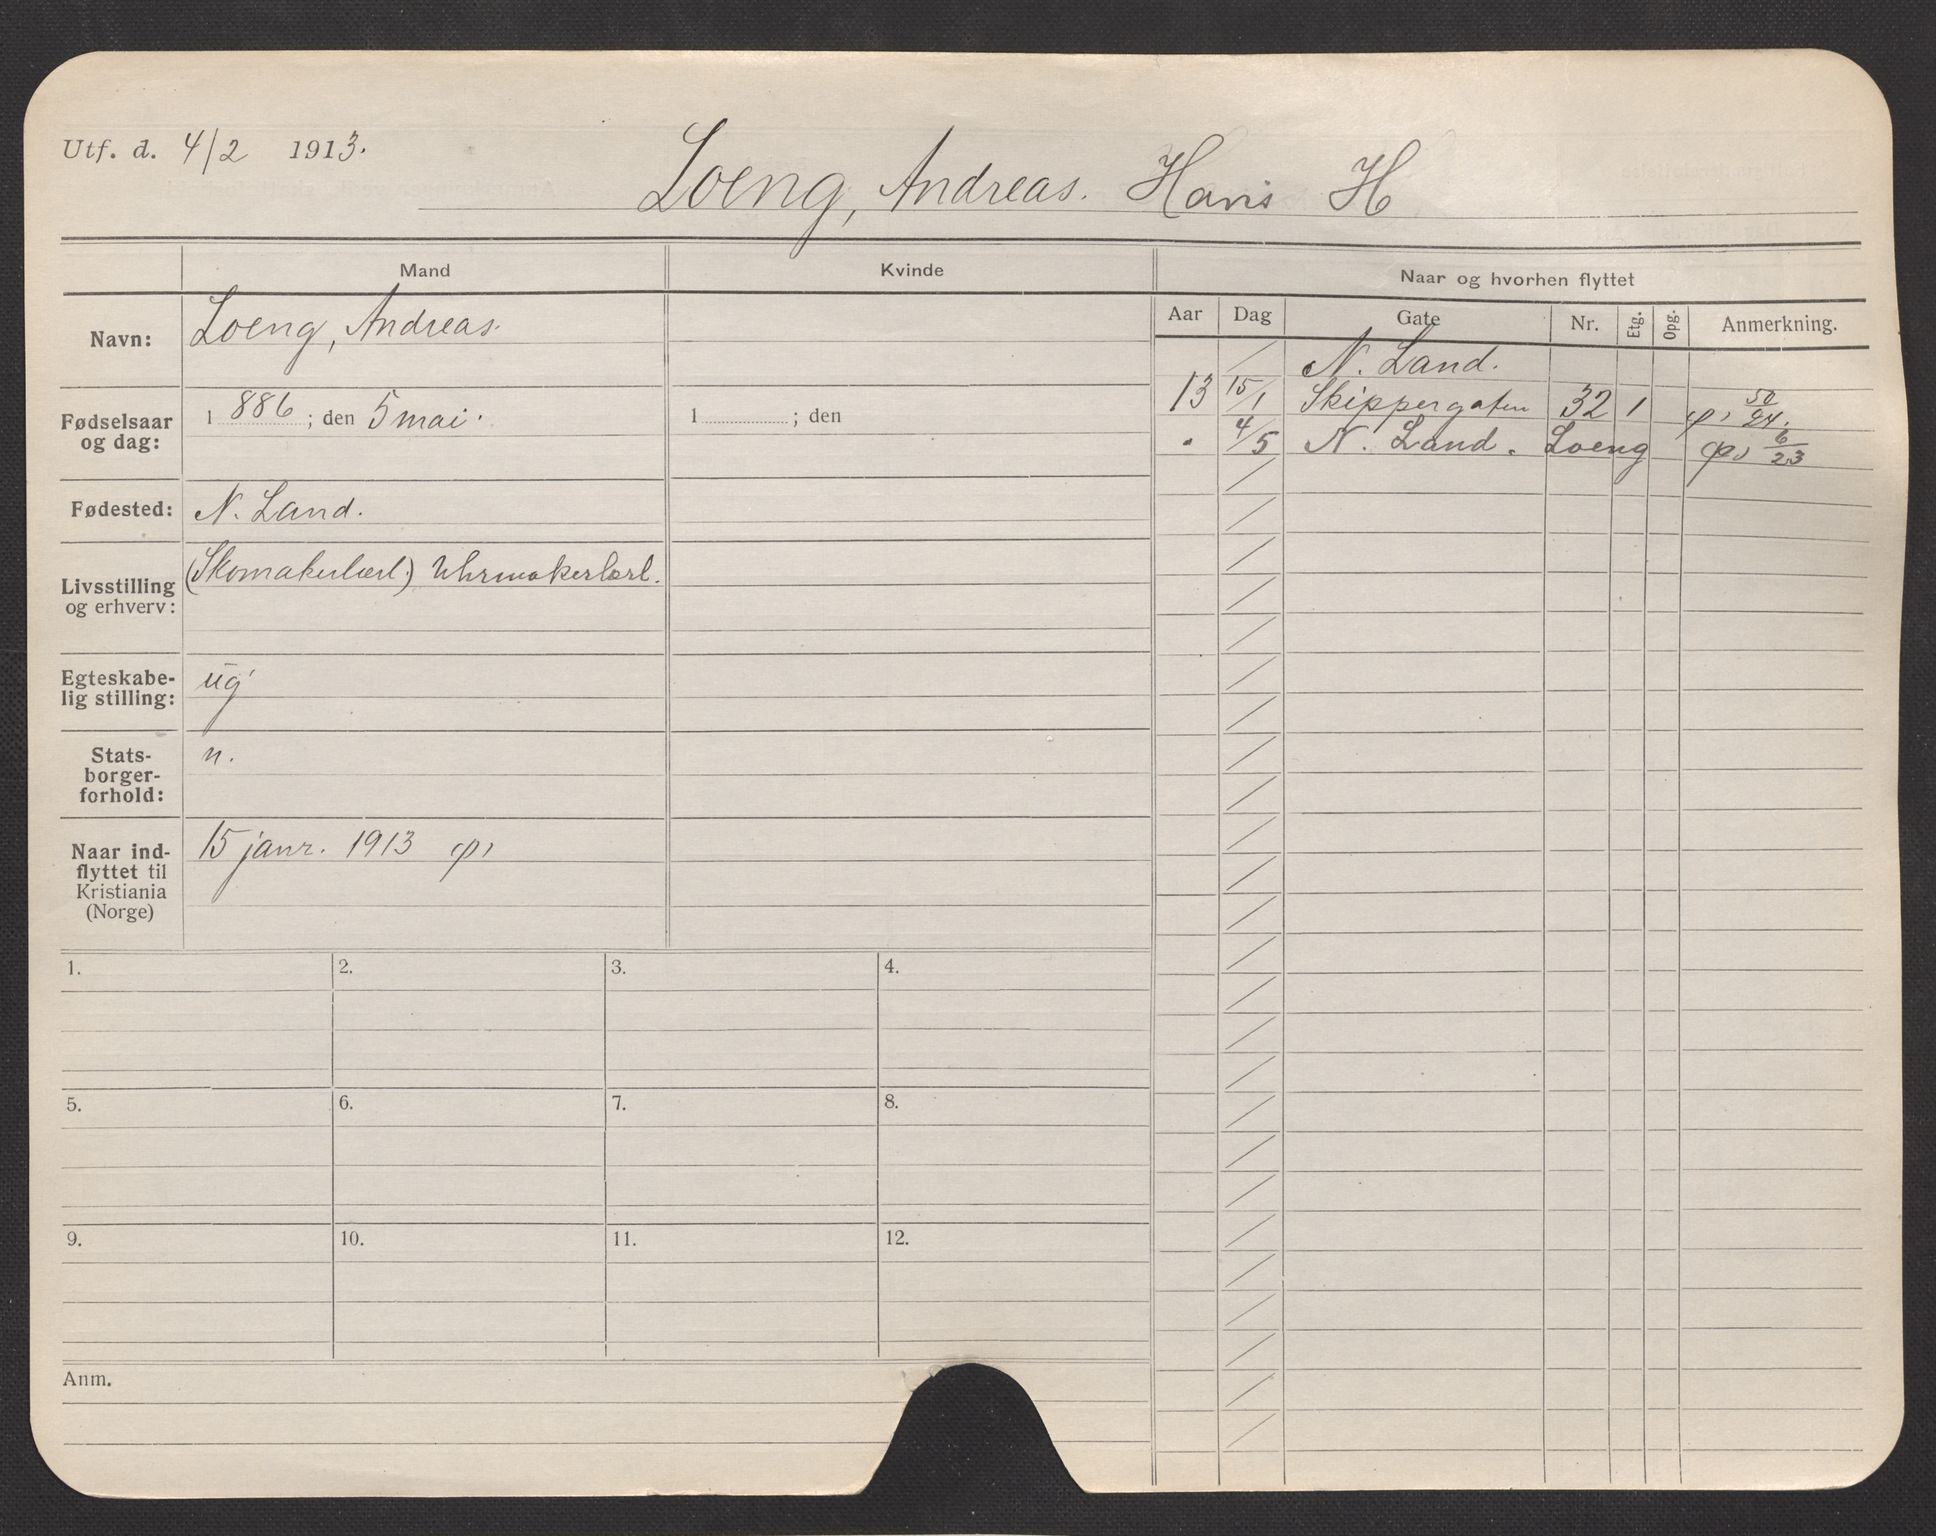 Utf. d. 4/2 1913.
Loeng, Andreas. Hans H
Mand
Kvinde
Naar og hvorhen flyttet
Aar Dag Gate Nr. Etg. Opg. Anmerkning.
Navn: Loeng, Andreas.
Fødselsaar og dag: 1 886 ; den 5 mai. 1 ; den
Fødested: N. Land.
Livsstilling og erhverv: (Skomakerlærl.) Uhrmakerlærl.
Egteskabe-
lig stilling: ug
Stats-
borger-
forhold: n.
Naar ind-
flyttet til
Kristiania
(Norge) 15 janr. 1913
N. Land.
13 15/1 Skippergaten 32 1 50/24.
" 4/5 N. Land. Loeng 6/23
1. 2. 3. 4.
5. 6. 7. 8.
9. 10. 11. 12.
Anm.